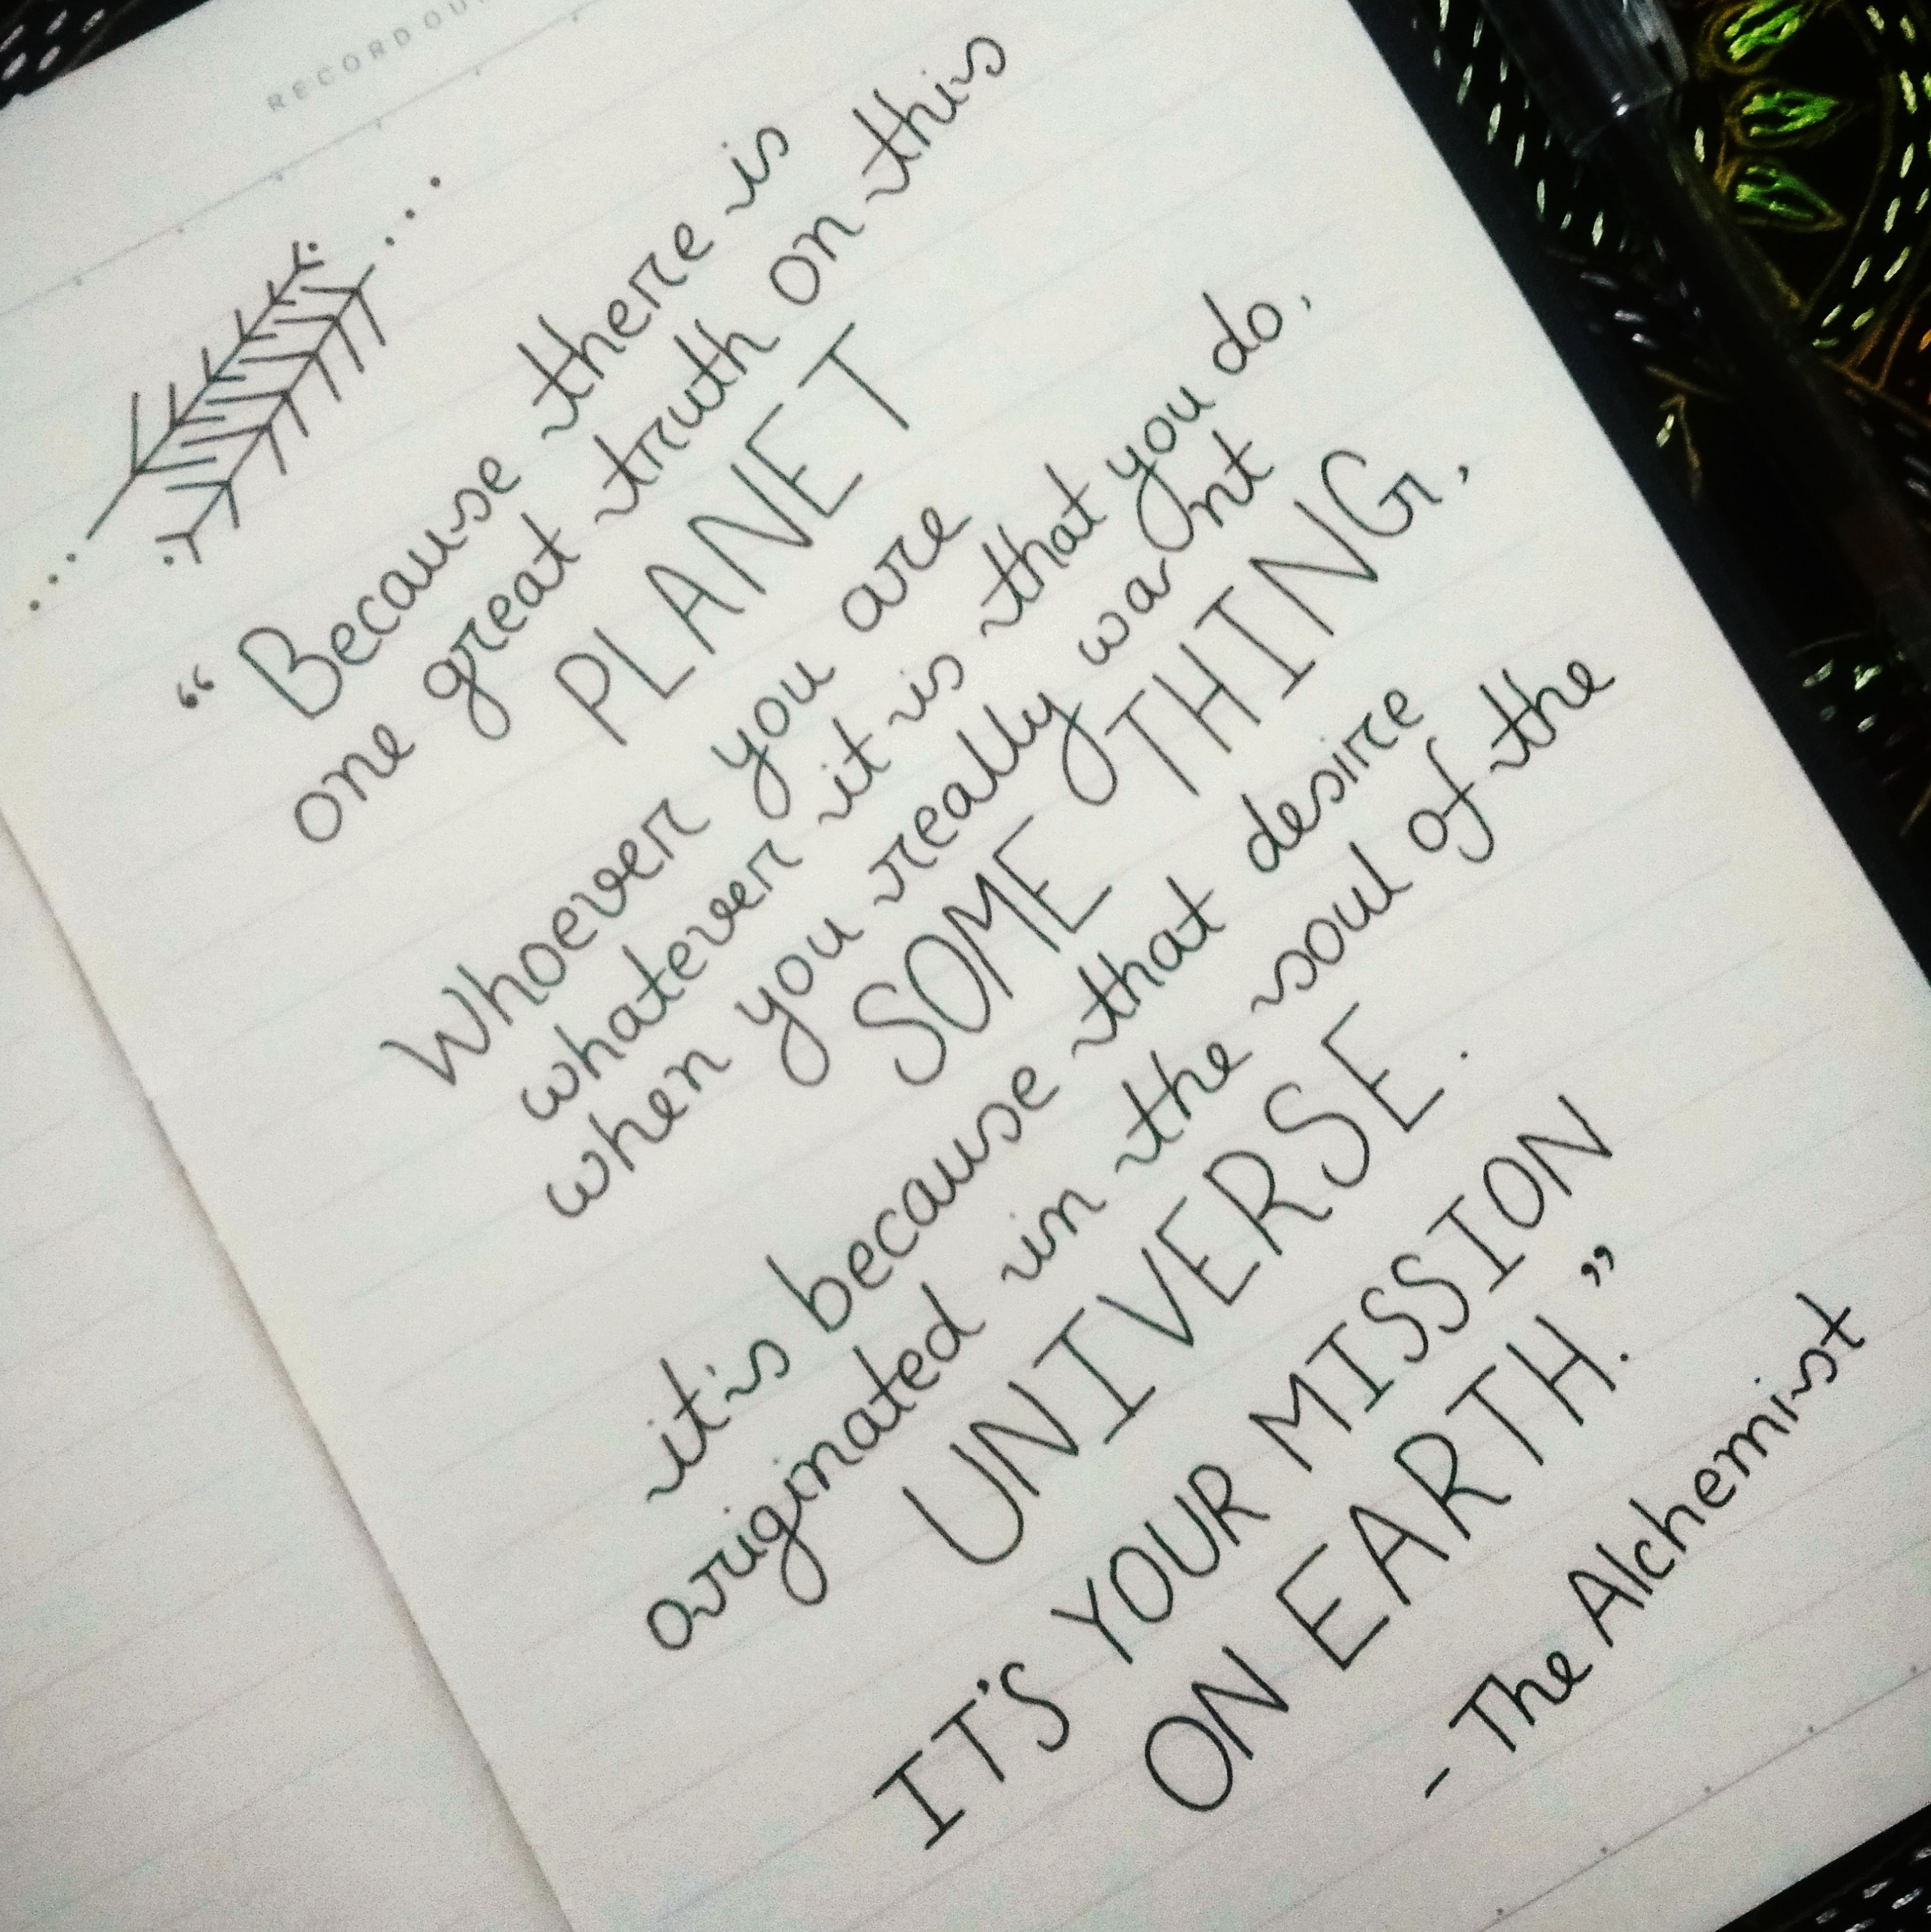 RECORD OU
“Because there is
one great truth on this
PLANET
Whoever you are
whatever it is that you do,
when you really want
SOME THING,
it's because that desire
originated in the soul of the
UNIVERSE.
IT'S YOUR MISSION
ON EARTH.”
- The Alchemist